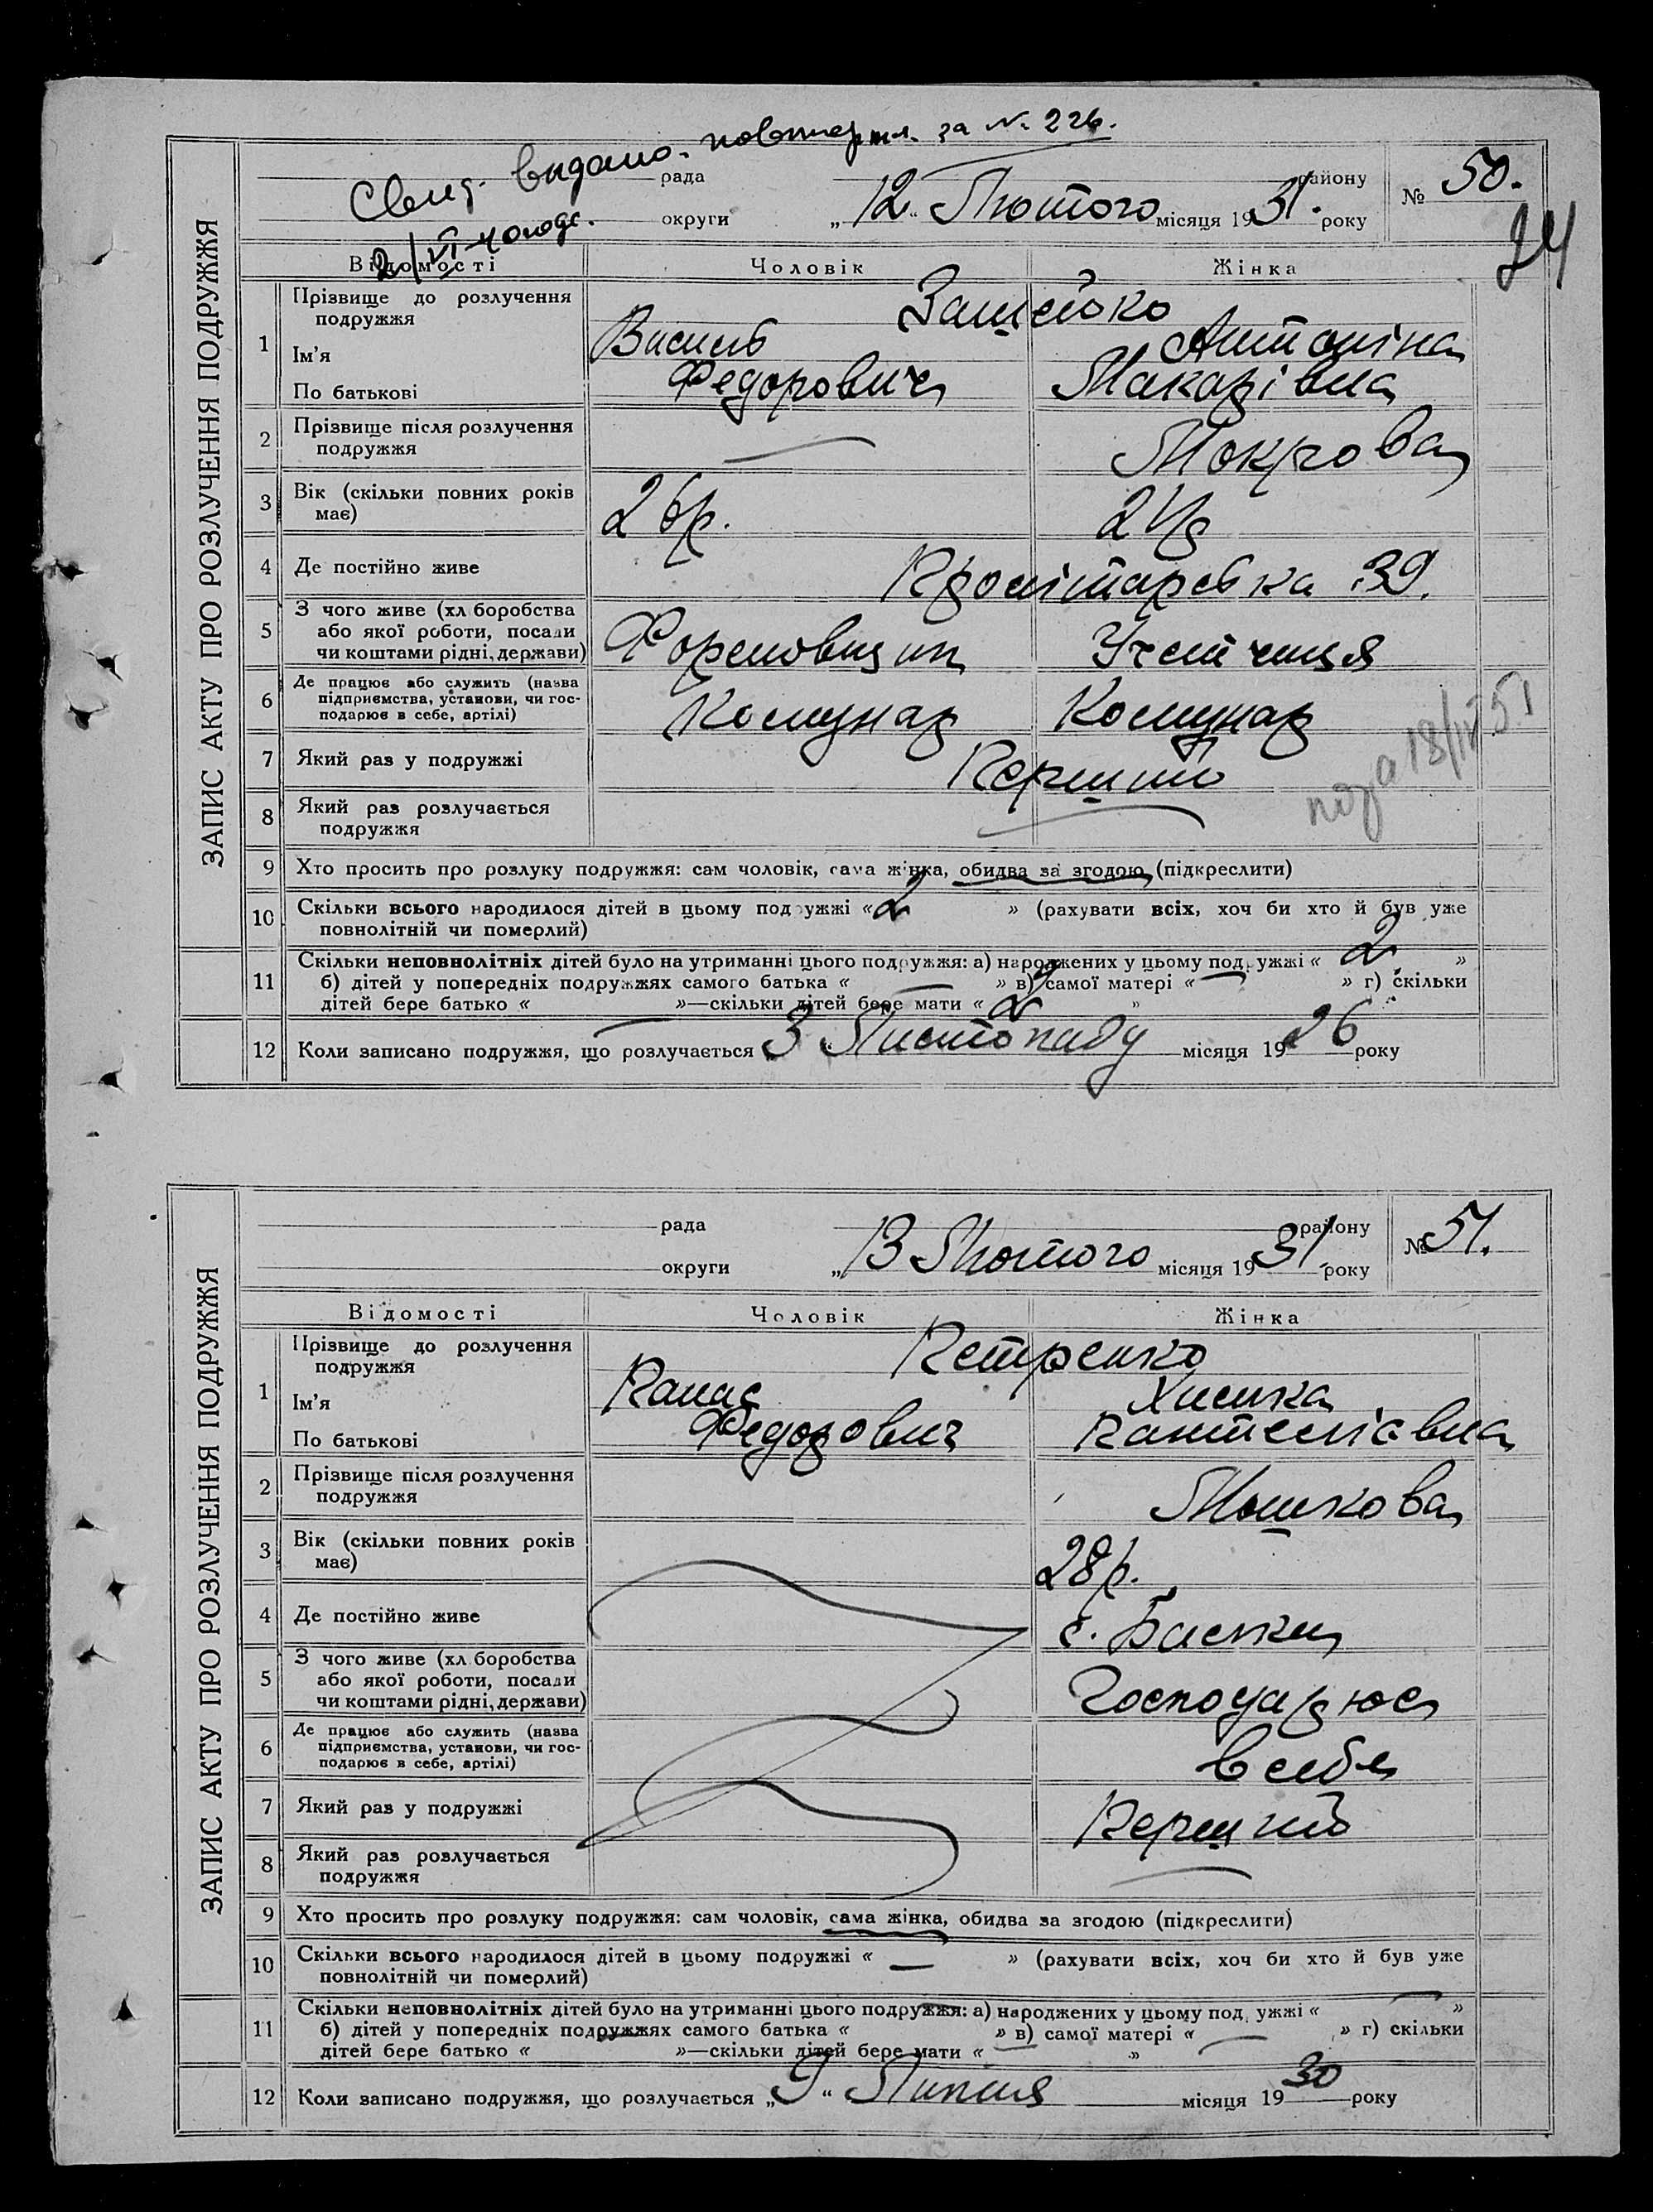 видано. повторн. за № 226.
рада району № 50.
округи „12“ Лютого місяця 1931. року
24
Відомості Чоловік Жінка
ЗАПИС АКТУ ПРО РОЗЛУЧЕННЯ ПОДРУЖЖЯ
1 Прізвище до розлучення
подружжя
Ім'я Василь Антоніна
По батькові Федорович Макарівна
2 Прізвище після розлучення
подружжя Мокрова
3 Вік (скільки повних років
має) 26р. 24р
4 Де постійно живе 39.
5 З чого живе (хл боробства
або якої роботи, посади
чи коштами рідні, держави) Формовщик Учениця
6 Де працює або служить (назва
підприємства, установи, чи гос-
подарює в себе, артілі) Комунар Комунар
7 Який раз у подружжі Перший
8 Який раз розлучається
подружжя
9 Хто просить про розлуку подружжя: сам чоловік, сама жінка, обидва за згодою (підкреслити)
10 Скільки всього народилося дітей в цьому подружжі «2» (рахувати всіх, хоч би хто й був уже
повнолітній чи померлий)
11 Скільки неповнолітніх дітей було на утриманні цього подружжя: а) народжених у цьому подружжі «2»
б) дітей у попередніх подружжях самого батька « — » в) самої матері « — » г) скільки
дітей бере батько « — »—скільки дітей бере мати «2»
12 Коли записано подружжя, що розлучається 3 Листопаду місяця 1926 року
рада району № 51.
округи „13 Лютого місяця 1931. року
Відомості Чоловік Жінка
ЗАПИС АКТУ ПРО РОЗЛУЧЕННЯ ПОДРУЖЖЯ
1 Прізвище до розлучення Петренко
подружжя
Ім'я Панас Химка
По батькові Федорович Пантеліївна
2 Прізвище після розлучення
подружжя Мошкова
3 Вік (скільки повних років
має) 28р.
4 Де постійно живе с.
5 З чого живе (хл.боробства
або якої роботи, посади
чи коштами рідні, держави) Господарює
6 Де працює або служить (назва
підприємства, установи, чи гос-
подарює в себе, артілі) в себе
7 Який раз у подружжі Перший
8 Який раз розлучається
подружжя
9 Хто просить про розлуку подружжя: сам чоловік, сама жінка, обидва за згодою (підкреслити)
10 Скільки всього народилося дітей в цьому подружжі « — » (рахувати всіх, хоч би хто й був уже
повнолітній чи померлий)
11 Скільки неповнолітніх дітей було на утриманні цього подружжя: а) народжених у цьому под ужжі « — »
б) дітей у попередніх подружжях самого батька « — » в) самої матері « — » г) скільки
дітей бере батько « »—скільки дітей бере мати « »
12 Коли записано подружжя, що розлучається „9“ Липня місяця 1930 року